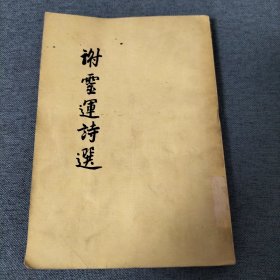 谢靈運詩選